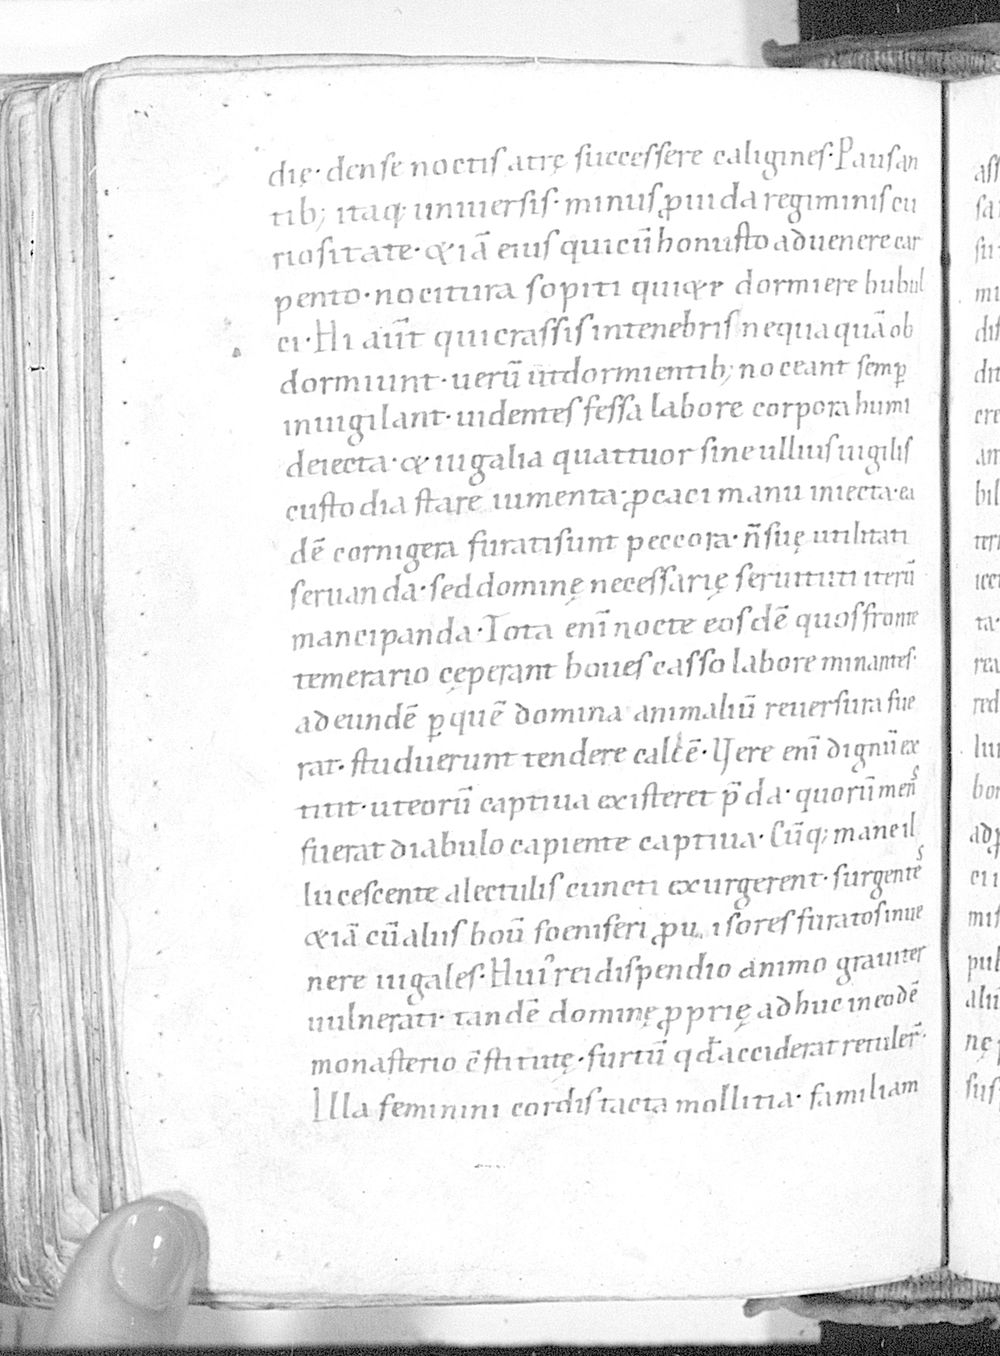 dię· dense noctis atrę successere caligines· Pausan
tib; itaq; uniuersis· minus ꝓuida regiminis cu
riositate· & iā eius quicū honusto aduenere car
pento· nocitura sopiti quiete dormiere bubul
ci· Hi aūt qui crassis in tenebris nequaquā ob
dormiunt· uerū ut dormientib; noceant semꝑ
inuigilant· uidentes fessa labore corpora humi
deiecta· & iugalia quattuor sine ullius uigilis
custodia stare iumenta· ꝓcaci manu iniecta· ea
dē cornigera furati sunt peccora· n̄ suę utilitati
seruanda· sed dominę necessarię seruituti iterū
mancipanda· Tota enī nocte eosdē quos fronte
temerario cęperant boues casso labore minantes·
ad eundē ꝑ quē domina animaliū reuersura fue
rat· studuerunt tendere callē· Vere enī dignū ex
titit· ut eorū captiua existeret p̄da· quorū mens
fuerat diabulo capiente captiua· Cūq; mane il
lucescente a lectulis cuncti exurgerent· surgentes
& iā cū aliis boū foeniferi ꝓuisores furatos inue
nere iugales· Hui' rei dispendio animo grauiter
uulnerati· tandē dominę ꝓprię adhuc in eodē
monasterio c̄stitutę· furtū qd̄ acciderat retuler̄·
Illa feminini cordis tacta mollitia· familiam